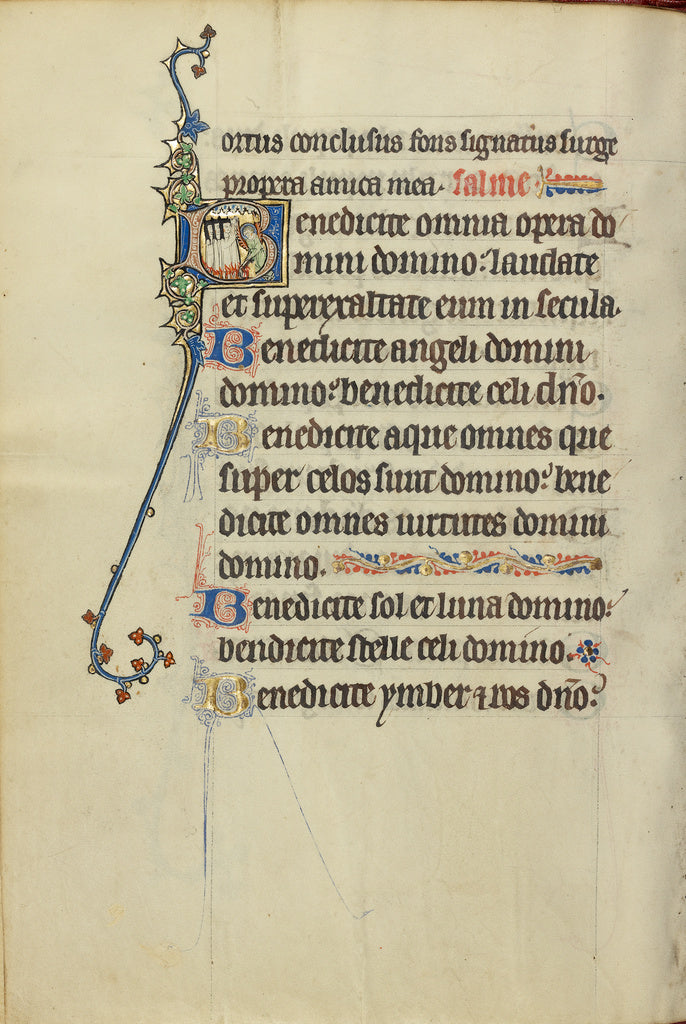 ortus conclusus fons signatus surge
propera amica mea. salme
Benedicite omnia opera do
mini domino: laudate
et superexaltate eum in secula.
Benedicite angeli domini
domino: benedicite celi dño.
Benedicite aque omnes que
super celos sunt domino: bene
dicite omnes uirtutes domini
domino.
Benedicite sol et luna domino:
bendicite stelle celi domino.
Benedicite ymber ⁊ ros dño: